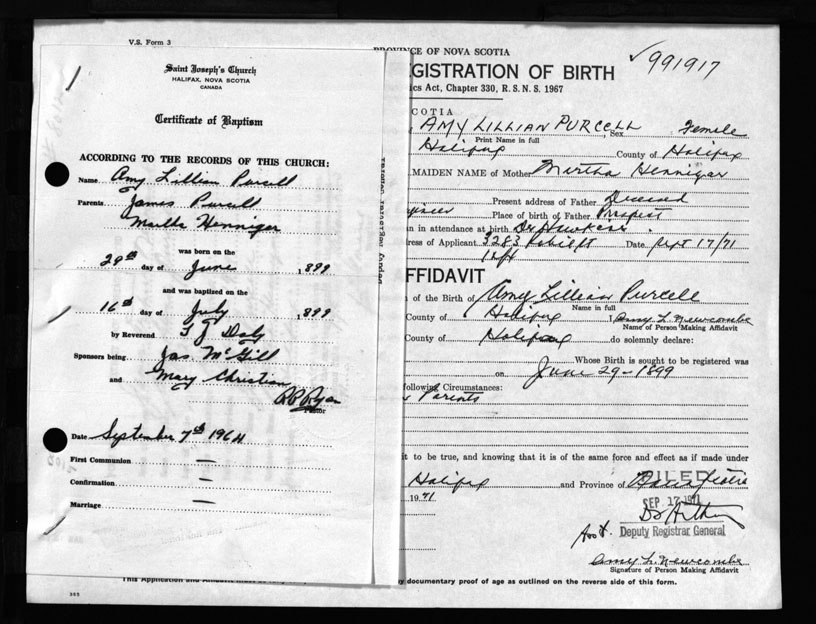 V.S. Form 3
Saint Joseph's Church
HALIFAX, NOVA SCOTIA
CANADA
Certificate of Baptism
ACCORDING TO THE RECORDS OF THIS CHURCH:
Name Amy Lillian Purcell
Parents James Purcell
Henniger
was born on the
29th day of June 1,899
and was baptized on the
16th day of July 1,899
by Reverend T J Daly
Sponsors being Jas McGill
and Mary Christian
Pastor
Date September 7th 1964
First Communion —
Confirmation —
Marriage —
PROVINCE OF NOVA SCOTIA
✓991917
EGISTRATION OF BIRTH
ics Act, Chapter 330, R. S. N. S. 1967
COTIA
AMY LILLIAN PURCELL Sex Female
Print Name in full
Halifax County of Halifax
MAIDEN NAME of Mother Martha Hennigar
Present address of Father Deceased
Place of birth of Father Prospect
an in attendance at birth Dr Hawkins
ress of Applicant 3283 Date Sept 17/71
FFIDAVIT
of the Birth of Amy Lillian Purcell
Name in full
County of Halifax I Amy L. Newcombe
Name of Person Making Affidavit
County of Halifax do solemnly declare:
Whose Birth is sought to be registered was
on June 29-1899
following Circumstances:
Parents
it to be true, and knowing that it is of the same force and effect as if made under
Halifax and Province of Nova Scotia
1971
FILED
SEP 17 1971
Deputy Registrar General
Amy L. Newcombe
Signature of Person Making Affidavit
This Application and Affidavit must be
y documentary proof of age as outlined on the reverse side of this form.